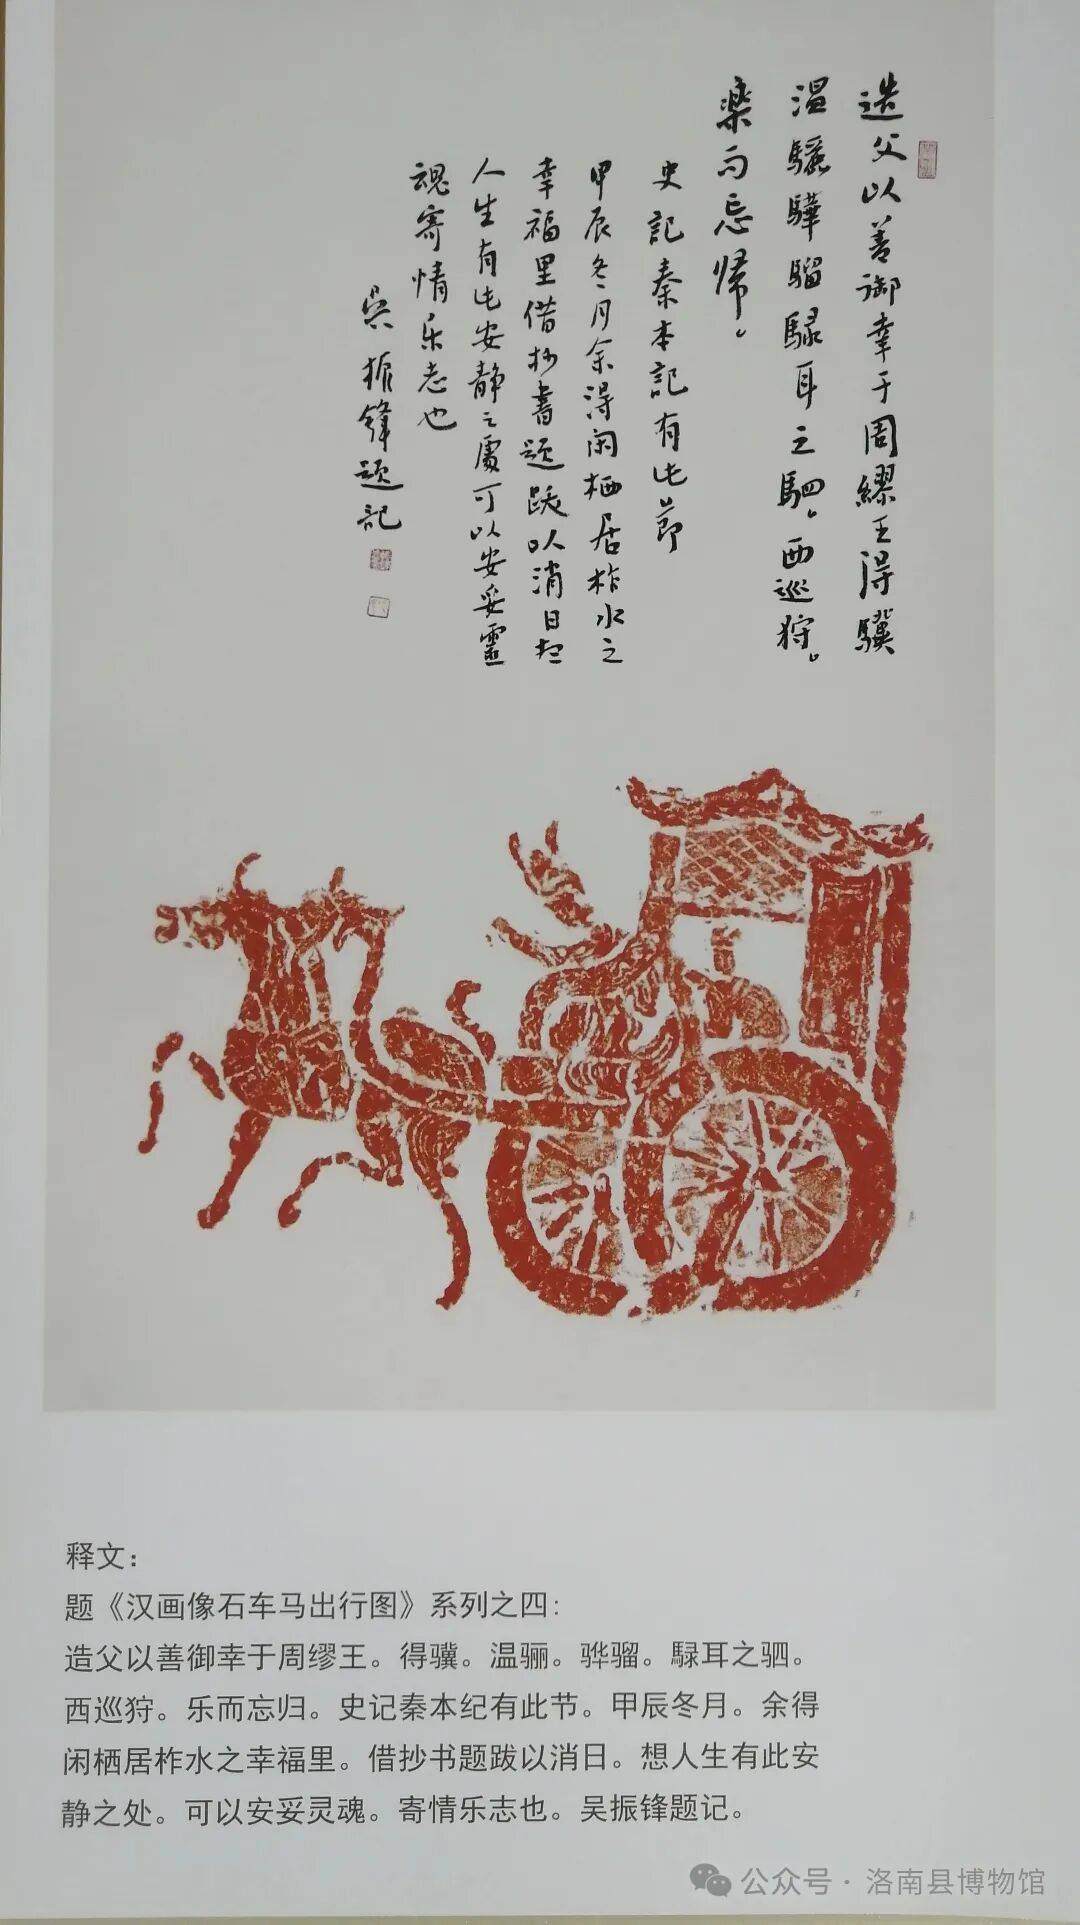 造父以善御幸于周繆王得驥
温驪驊騮騄耳之駟西巡狩
樂而忘帰
史記秦本記有此節
甲辰冬月余得闲栖居柞水之
幸福里借抄書题跋以消日想
人生有此安静之處可以安妥靈
魂寄情乐志也
吴振鋒题记
释文：
题《汉画像石车马出行图》系列之四：
造父以善御幸于周缪王。得骥。温骊。骅骝。騄耳之驷。
西巡狩。乐而忘归。史记秦本纪有此节。甲辰冬月。余得
闲栖居柞水之幸福里。借抄书题跋以消日。想人生有此安
静之处。可以安妥灵魂。寄情乐志也。吴振锋题记。
公众号·洛南县博物馆